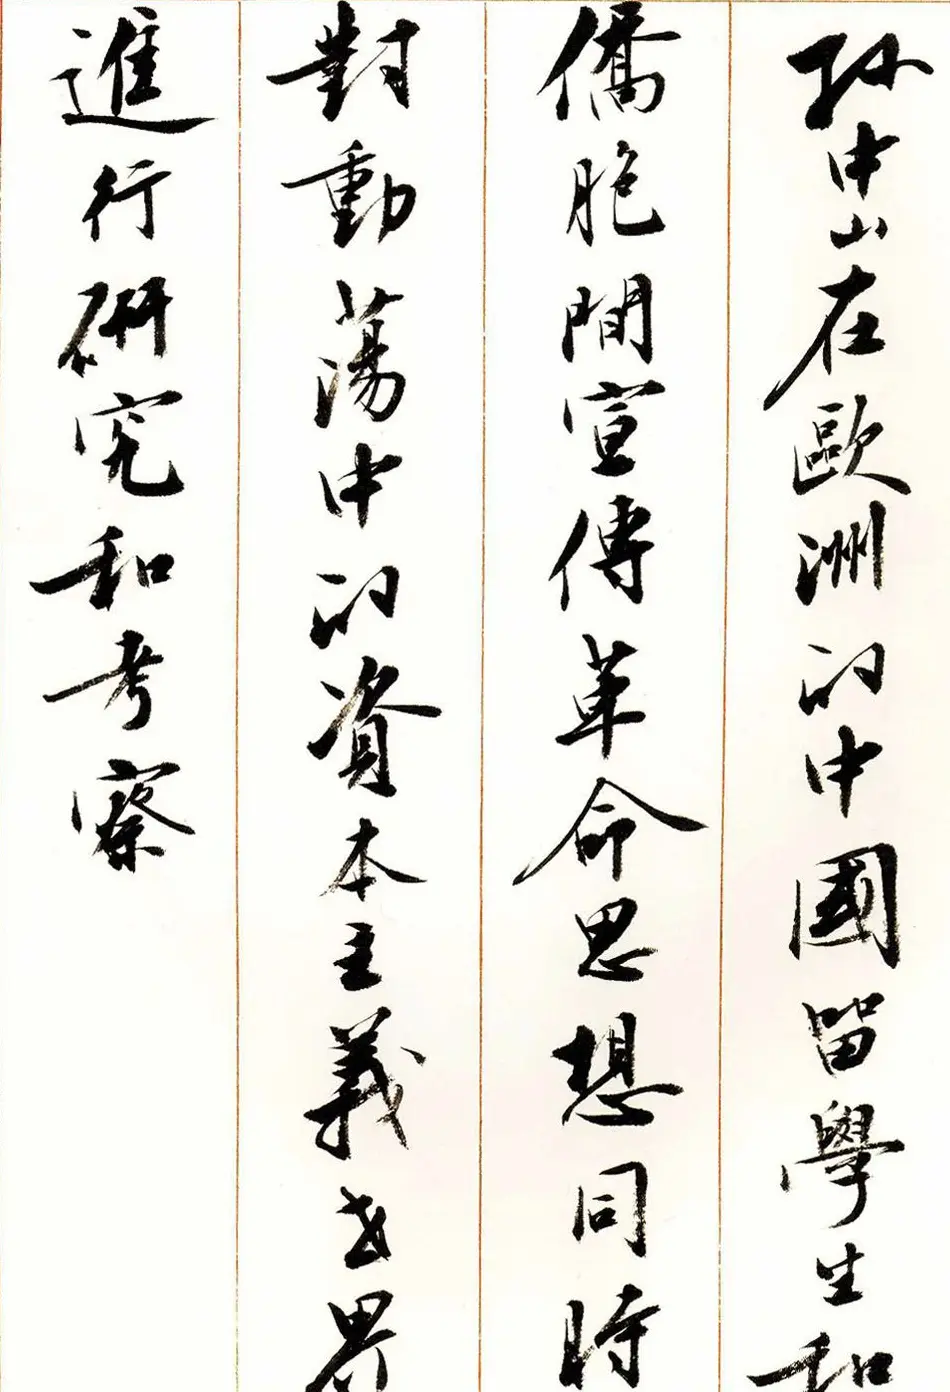 孙中山在歐洲的中國留學生和
僑胞間宣傳革命思想同時
對動蕩中的資本主義世界
進行研究和考察